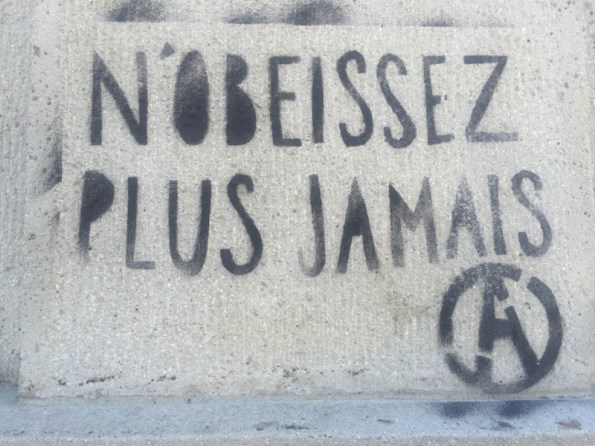 N'OBEISSEZ
PLUS JAMAIS
A